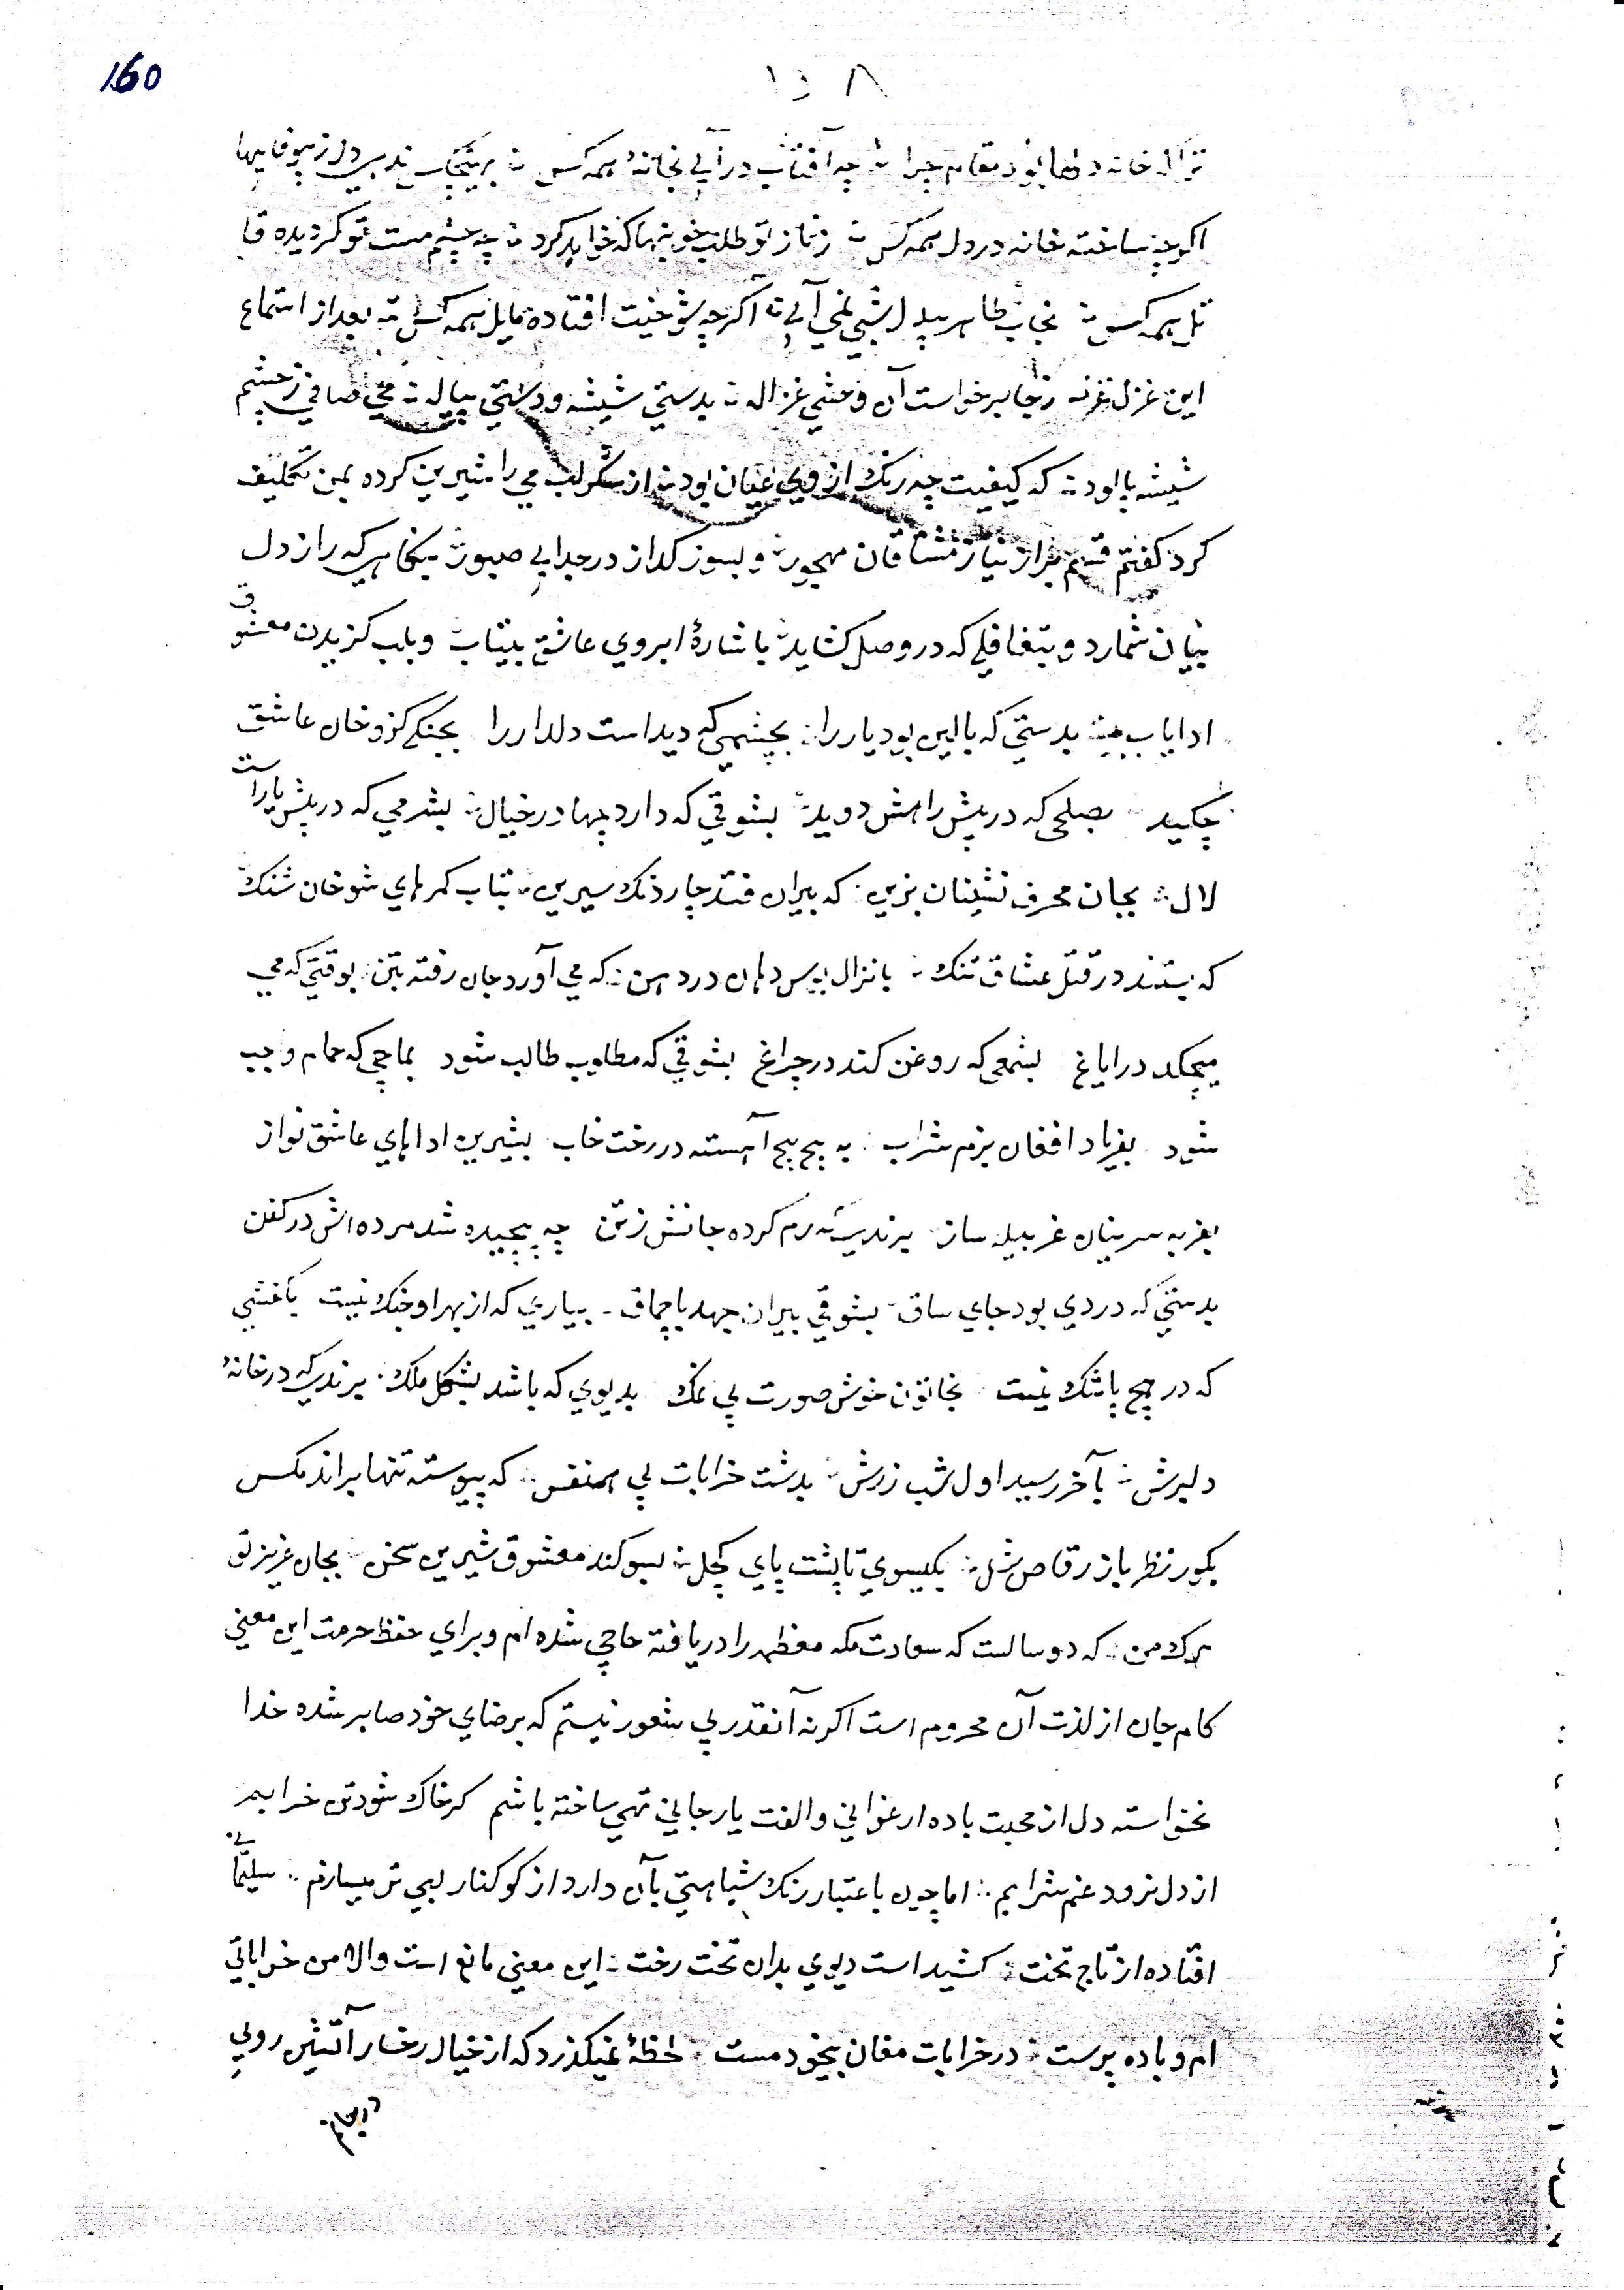 160
۱۵۸
ترا که خانه دلها بود مقام چرا چه آفتاب درآیی بخانهٔ همه کس
اکرچه ساخته خانه در دل همه کس زناز تو طلب خونبها که خواهد کرد چه چشم مست تو کردیده قا
تل همه کس بخاب طاهر بیدل شبی نمی آیی اکرچه شوخیت افتاده مایل همه کس بعد از استماع
این غزل غرنه زجا برخواست آن وحشی غزاله بدستی شیشه ودستی پیاله می صافی زچشم
شیشه پالود که کیفیت چه رنک از وی عیان بود از شکر لب می را شیرین کرده بمن تکلیف
کرد کفتم قسم براز نیاز مشتاقان مهجور و بسوز کداز در جدایی صبور بنکاهی که راز دل
بیان شمارد و بتغافلی که در وصل کشاید باشارهٔ ابروی عاشق بیتاب و بلب کزیدن معشوق
ادایاب بیت بدستی که بالین بود یار را بچشمی که دیداست دلدار را بجنکی کزو خان عاشق
چکید بصلحی که در پیش راهش دوید بشوقی که دارد چها در خیال بشرمی که در پیش یاراست
لال بجان محرف نشینان بزین که بیران فتد چارذنک سیرین بتاب کمرهای شوخان شنک
که بستند در قتل عشاق تنک بانزال بوس دهان در دهن که می آورد جان رفته بتن بوقتی که می
میچکد در ایاغ بشمعی که روغن کند در چراغ بشوقی که مطلوب طالب شود بماچی که حمام واجب
شود بفریاد افغان بزم شراب به پچ پچ آهسته در رخت خاب بشیرین اداهای عاشق نواز
بغربه سرینان غربیله ساز برندیست رم کرده جانش زتن چه پیچیده شد مرده اش در کفن
بدستی که دردی بود جای ساق بشوقی بیران جهد با چماق بیاری که از بهر او جنک نیست باغشی
که در هیچ پا شنک نیست بخاتون خوش صورت بی نمک بدیوی که باشد بشکل ملک برندی که در خانهٔ
دلبرش بآخر رسید اول شب زرش بدشت خرابات بی همنفس که پیوسته تنها براند مکس
بکور نظر باز رقاص شل بکیسوی تا پشت پای کچل بسوکند معشوق شیرین سخن بجان عزیز تو
مرک من که دو سالست که سعادت مکه معظمه را دریافته حاجی شده ام و برای حفظ حرمت این معنی
کام جان از لذت آن محروم است اکرنه آنقدر بی شعور نیستم که برضای خود صابر شده خدا
نخواسته دل از محبت باده ارغوانی والفت یار جانی تهی ساخته باشم کر خاک شود تن خرابم
از دل نرود غم شرابم اما چون باعتبار رنک شباهتی بآن دارد از کوکنار لبی تر میسازم سلیمانی
افتاده از تاج تخت کشیداست دیوی بدان تخت رخت این معنی مانع است والا من خراباتی
ام و باده پرست در خرابات مغان بیخود مست لحظهٔ نمیکذرد که از خیال رخسار آتشین رویی